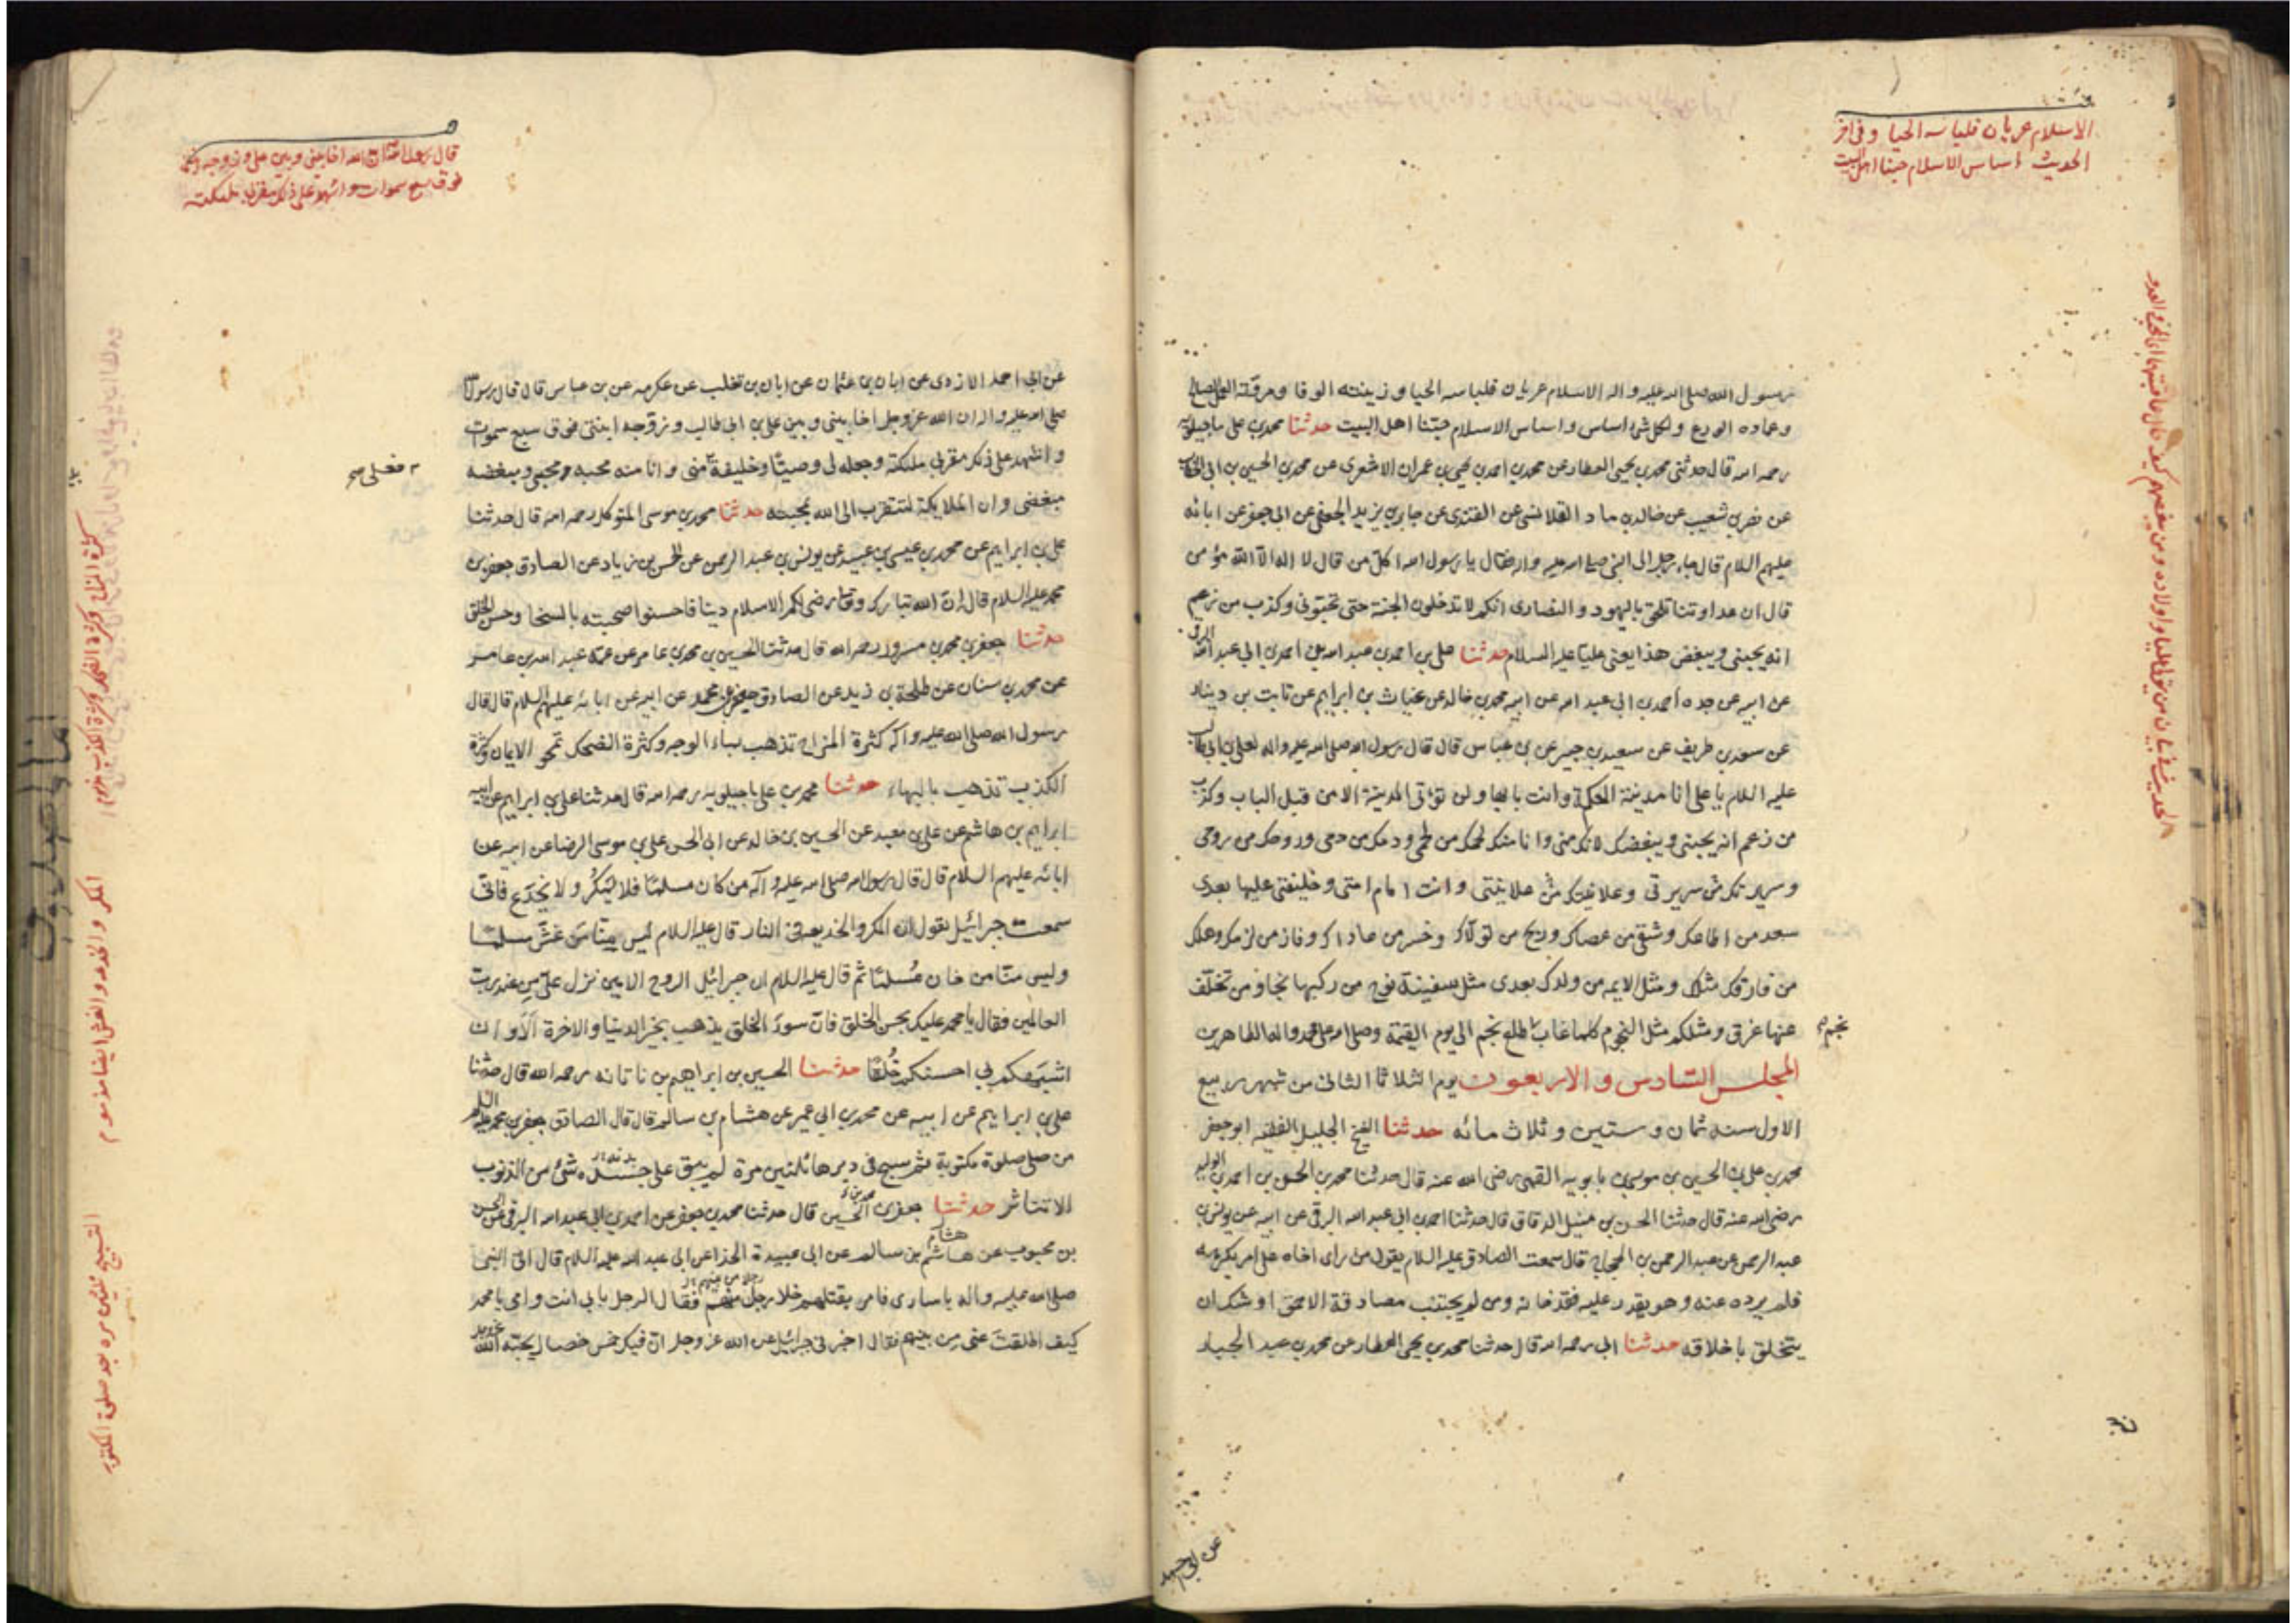 الاسلام عريان فلباسه الحيا وفى اخر
الحديث اساس الاسلام حبنا اهل البيت
رسول الله صلى الله عليه واله الاسلام عريان فلباسه الحيا وزينته الوفا ومروته العمل الصالح
وعماده الورع ولكل شئ اساس واساس الاسلام حبنا اهل البيت حدثنا محمد بن على ماجيلويه
رحمه الله قال حدثنى محمد بن يحيى العطار عن محمد بن احمد بن يحيى بن عمران الاشعرى عن محمد بن الحسين بن ابى الخطاب
عن نضر بن شعيب عن خالد بن ماد القلانسى عن القندى عن جابر بن يزيد الجعفى عن ابى جعفر عن ابائه
عليهم السلام قال جاء رجل الى النبى صلى الله عليه واله فقال يا رسول الله اكل من قال لا اله الا الله مؤمن
قال ان عداوتنا تلحق باليهود والنصارى انكم لا تدخلون الجنة حتى تحبونى وكذب من زعم
انه يحبنى ويبغض هذا يعنى عليا عليه السلام حدثنا على بن احمد بن عبد الله بن احمد بن ابى عبد الله البرقى
عن ابيه عن جده احمد بن ابى عبد الله عن ابيه محمد بن خالد عن غياث بن ابراهيم عن ثابت بن دينار
عن سعد بن طريف عن سعيد بن جبير عن بن عباس قال قال رسول الله صلى الله عليه واله لعلى بن ابى طالب
عليه السلام يا على انا مدينة الحكمة وانت بابها ولن تؤتى المدينة الا من قبل الباب وكذب
من زعم انه يحبنى ويبغضك لانك منى وانا منك لحمك من لحمى ودمك من دمى وروحك من روحى
وسريرتك من سريرتى وعلانيتك من علانيتى وانت امام امتى وخليفتى عليها بعدى
سعد من اطاعك وشقى من عصاك وربح من تولاك وخسر من عاداك وفاز من لزمك وهلك
من فارقك مثلك ومثل الايمه من ولدك بعدى مثل سفينة نوح من ركبها نجا ومن تخلف
عنها غرق ومثلكم مثل النجوم كلما غاب طلع نجم الى يوم القيمة وصلى الله على محمد واله الطاهرين
نجم
المجلس السادس والاربعون يوم الثلاثا الثانى من شهر ربيع
الاول سنه ثمان وستين وثلاث مائه حدثنا الشيخ الجليل الفقيه ابو جعفر
محمد بن على بن الحسين بن موسى بن بابويه القمى رضى الله عنه قال حدثنا محمد بن الحسن بن احمد بن الوليد
رضى الله عنه قال حدثنا الحسن بن متيل الدقاق قال حدثنا احمد بن ابى عبد الله البرقى عن ابيه عن يونس بن
عبد الرحمن عن عبد الرحمن بن الحجاج قال سمعت الصادق عليه السلام يقول من راى اخاه على امر يكرهه
فلم يرده عنه وهو يقدر عليه فقد خانه ومن لم يجتنب مصادقة الاحمق اوشك ان
يتخلق باخلاقه حدثنا ابى رحمه الله قال حدثنا محمد بن يحيى العطار عن محمد بن عبد الجبار
عن ابى احمد
قال رسول الله ان الله اخا بينى وبين على وزوجه ابنتى
فوق سبع سموات واشهد على ذلك مقربى ملئكته
عن ابى احمد الازدى عن ابان بن عثمان عن ابان بن تغلب عن عكرمه عن بن عباس قال قال رسول الله
صلى الله عليه واله ان الله عز وجل اخا بينى وبين على بن ابى طالب وزوجه ابنتى فوق سبع سموات
واشهد على ذلك مقربى ملئكته وجعله لى وصيا وخليفة منى وانا منه محبه محبى ومبغضه
فعلى صح
مبغضى وان الملايكة لتتقرب الى الله بمحبته حدثنا محمد بن موسى المتوكل رحمه الله قال حدثنا
على بن ابراهيم عن محمد بن عيسى بن عبيد عن يونس بن عبد الرحمن عن الحسن بن زياد عن الصادق جعفر بن
محمد عليه السلام قال ان الله تبارك وتعالى رضى لكم الاسلام دينا فاحسنوا صحبته بالسخا وحسن الخلق
حدثنا جعفر بن محمد بن مسرور رحمه الله قال حدثنا الحسين بن محمد بن عامر عن عمه عبد الله بن عامر
عن محمد بن سنان عن طلحة بن زيد عن الصادق جعفر بن محمد عن ابيه عن ابائه عليهم السلام قال قال
رسول الله صلى الله عليه واله كثرة المزاح تذهب بماء الوجه وكثرة الضحك تمحو الايمان وكثرة
الكذب تذهب بالبهاء حدثنا محمد بن على ماجيلويه رحمه الله قال حدثنا على بن ابراهيم عن ابيه
ابراهيم بن هاشم عن على بن معبد عن الحسين بن خالد عن ابى الحسن على بن موسى الرضا عن ابيه عن
ابائه عليهم السلام قال قال رسول الله صلى الله عليه واله من كان مسلما فلا يمكر ولا يخدع فانى
سمعت جبرائيل يقول ان المكر والخديعه فى النار قال عليه السلام ليس منا من غش مسلما
وليس منا من خان مسلما ثم قال عليه السلام ان جبرائيل الروح الامين نزل على من عند رب
العالمين فقال يا محمد عليك بحسن الخلق فان سوء الخلق يذهب بخير الدنيا والاخرة الا وان
اشبهكم بى احسنكم خلقا حدثنا الحسين بن ابراهيم بن ناتانه رحمه الله قال حدثنا
على بن ابراهيم عن ابيه عن محمد بن ابى عمير عن هشام بن سالم قال قال الصادق جعفر بن محمد عليه السلم
من صلى صلوة مكتوبة ثم سبح فى دبرها ثلثين مرة لم يبق على جسده بدنه شئ من الذنوب
الا تناثر حدثنا جعفر بن الحسين قال حدثنا محمد بن جعفر عن احمد بن ابى عبد الله البرقى عن الحسن
بن محبوب عن هاشم هشام بن سالم عن ابى عبيدة الحذا عن ابى عبد الله عليه السلام قال اتى النبى
صلى الله عليه واله باسارى فامر بقتلهم خلا رجل منهم فقال الرجل بابى انت وامى يا محمد
كيف اطلقت عنى من بينهم فقال اخبرنى جبرائيل عن الله عز وجل ان فيك خمس خصال يحبه الله عز وجل
المكر والخدعه والغش ايضا مذموم
التسبيح ثلثين مره بعد صلوة المكتوبه